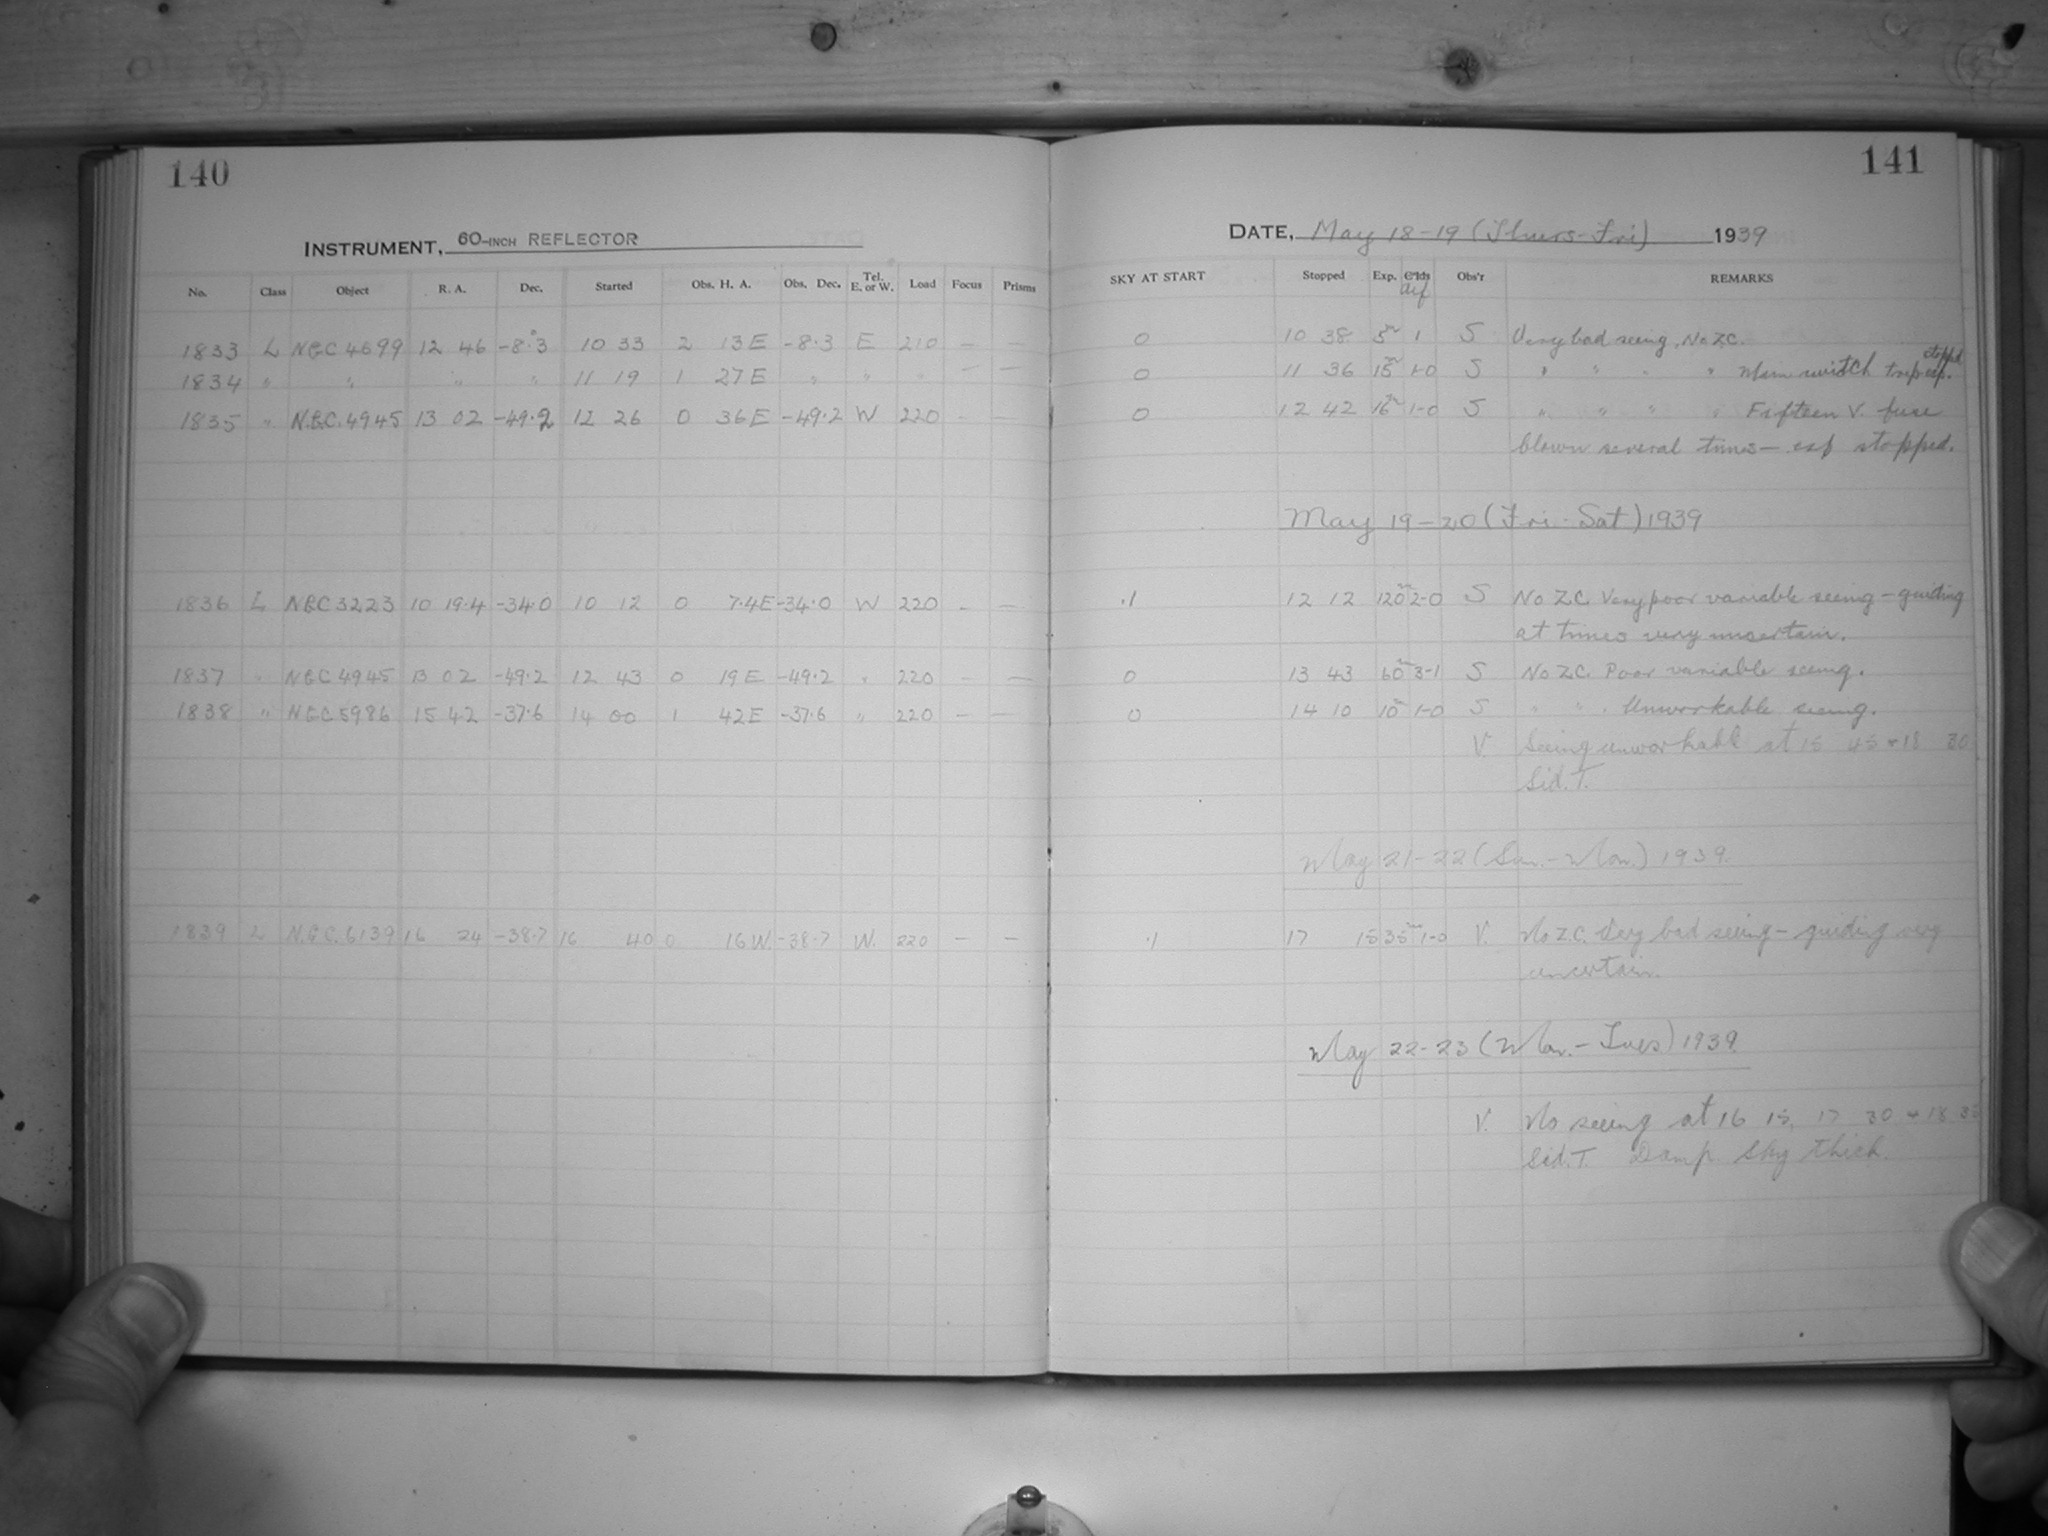 140
INSTRUMENT, 60-INCH REFLECTOR
No. Class Object R. A. Dec. Started Obs. H. A. Obs. Dec. Tel. E. or W. Load Focus Prisms
1833 L NGC 4699 12 46 -8°.3 10 33 2 13 E -8.3 E 210 — —
1834 " " " " 11 19 1 27 E " " " — —
1835 " N.G.C. 4945 13 02 -49.2 12 26 0 36 E -49.2 W 220
1836 L NGC 3223 10 19.4 -34.0 10 12 0 7.4E -34.0 W 220 - —
1837 " NGC 4945 13 02 -49.2 12 43 0 19 E -49.2 " 220 — —
1838 " NGC 5986 15 42 -37.6 14 00 1 42 E -37.6 " 220 — —
1839 L N.G.C. 6139 16 24 -38.7 16 40 0 16 W. -38.7 W. 220 — —
141
DATE, May 18-19 (Thurs-Fri) 1939
SKY AT START Stopped Exp. Obs'r REMARKS
0 10 38 5m 1 S Very bad seeing. No Z.C.
0 11 36 15m 1-0 S " " " " Main switch trip exp. stopped
0 12 42 16m 1-0 S " " " " Fifteen V. fuse
blown several times — exp stopped.
May 19-20 (Fri-Sat) 1939
.1 12 12 120m 2-0 S No Z.C. Very poor variable seeing - guiding
at times very uncertain.
0 13 43 60m 3-1 S No Z.C. Poor variable seeing.
0 14 10 10m 1-0 S " " . Unworkable seeing.
V. Seeing unworkable at 15 45 + 18 30
Sid. T.
May 21-22 (Sun.-Mon.) 1939.
.1 17 15 35m 1-0 V. No Z.C. Very bad seeing - guiding very
uncertain.
May 22-23 (Mon.-Tues) 1939.
V. No seeing at 16 15, 17 30 + 18 35
Sid. T. Damp Sky thick.